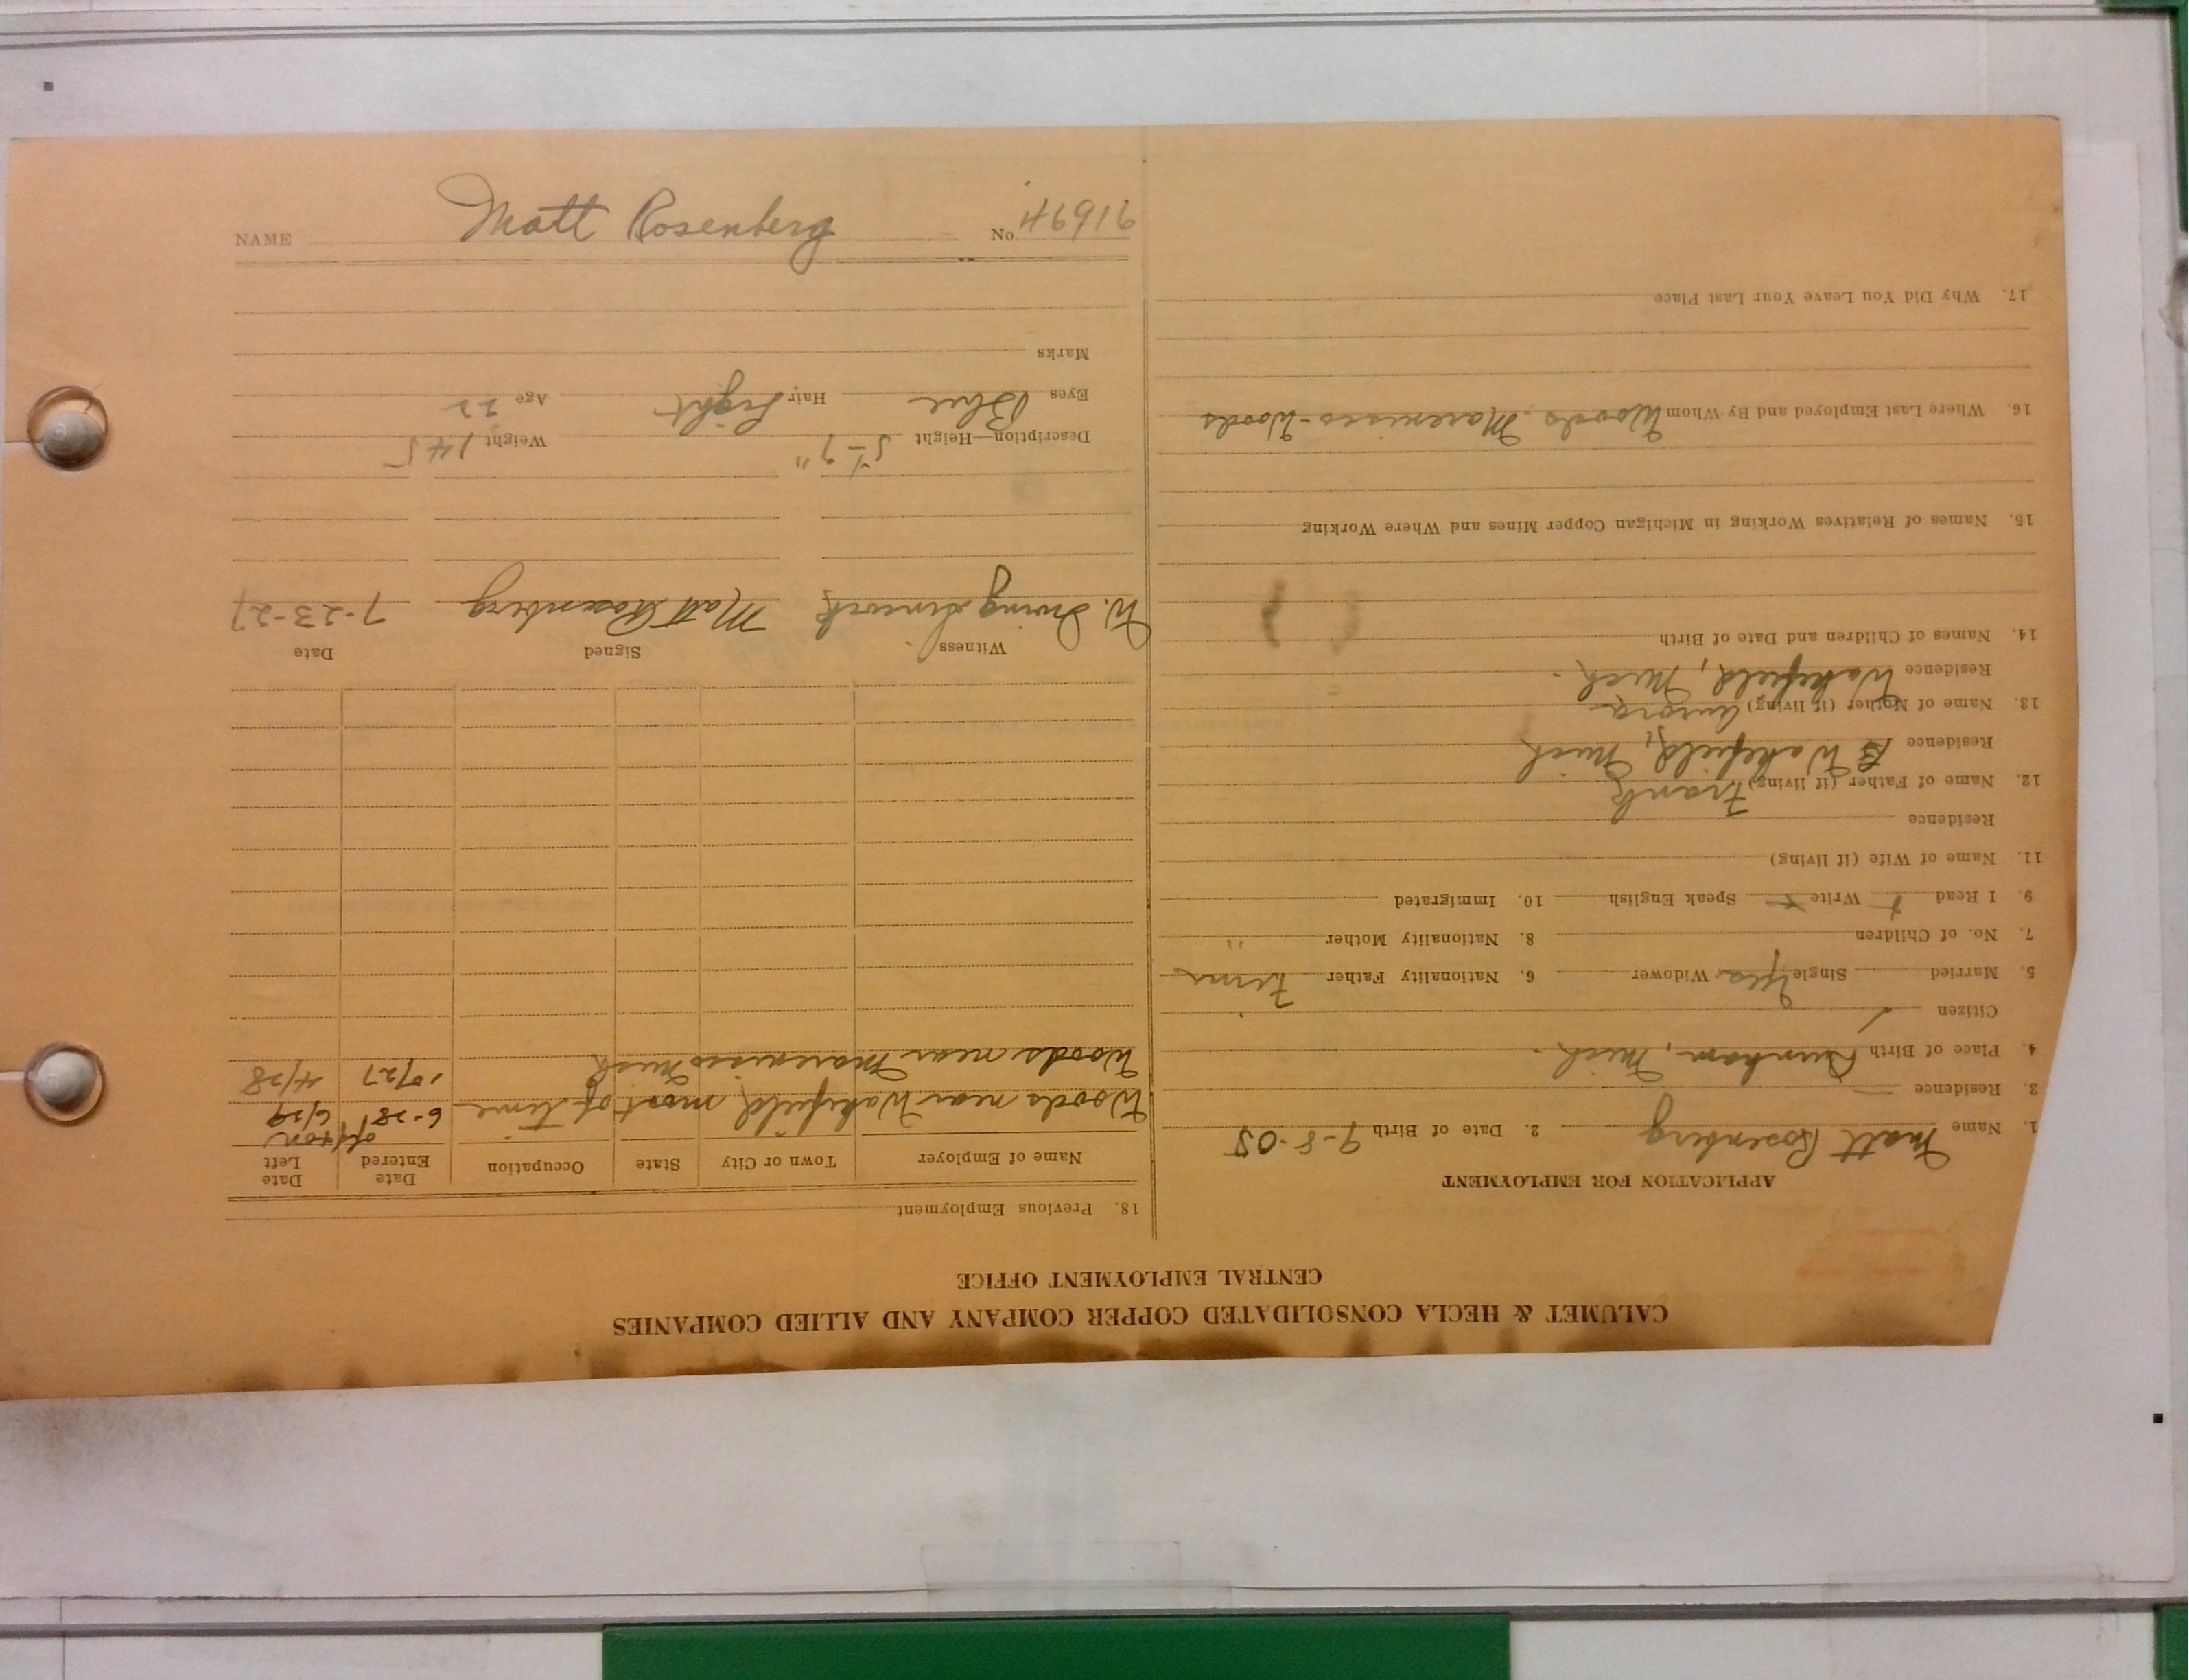 CALUMET & HECLA CONSOLIDATED COPPER COMPANY AND ALLIED COMPANIES
CENTRAL EMPLOYMENT OFFICE
APPLICATION FOR EMPLOYMENT
1. Name Matt Rosenberg 2. Date of Birth
3. Residence
4. Place of Birth Mich.
Citizen
5. Married Single Yes Widower 6. Nationality Father Finn
7. No. of Children 8. Nationality Mother "
9. I Read x Write x Speak English 10. Immigrated
11. Name of Wife (if living)
Residence
12. Name of Father (if living) Frank
Residence Wakefield, Mich
13. Name of Mother (if living)
Residence Wakefield, Mich.
14. Names of Children and Date of Birth
15. Names of Relatives Working in Michigan Copper Mines and Where Working
16. Where Last Employed and By Whom Woods. Marenisco - Woods
17. Why Did You Leave Your Last Place
18. Previous Employment
Name of Employer Town or City State Occupation Date Entered Date Left
off & on
Woods near Wakefield, most of time 6-28 6/29
Woods near Marenisco Mich 10/27 4/28
Witness Signed Date
W. Irving Matt Rosenberg
Description—Height Weight 145
Eyes Blue Hair Light Age 22
Marks
NAME Matt Rosenberg No. 46916